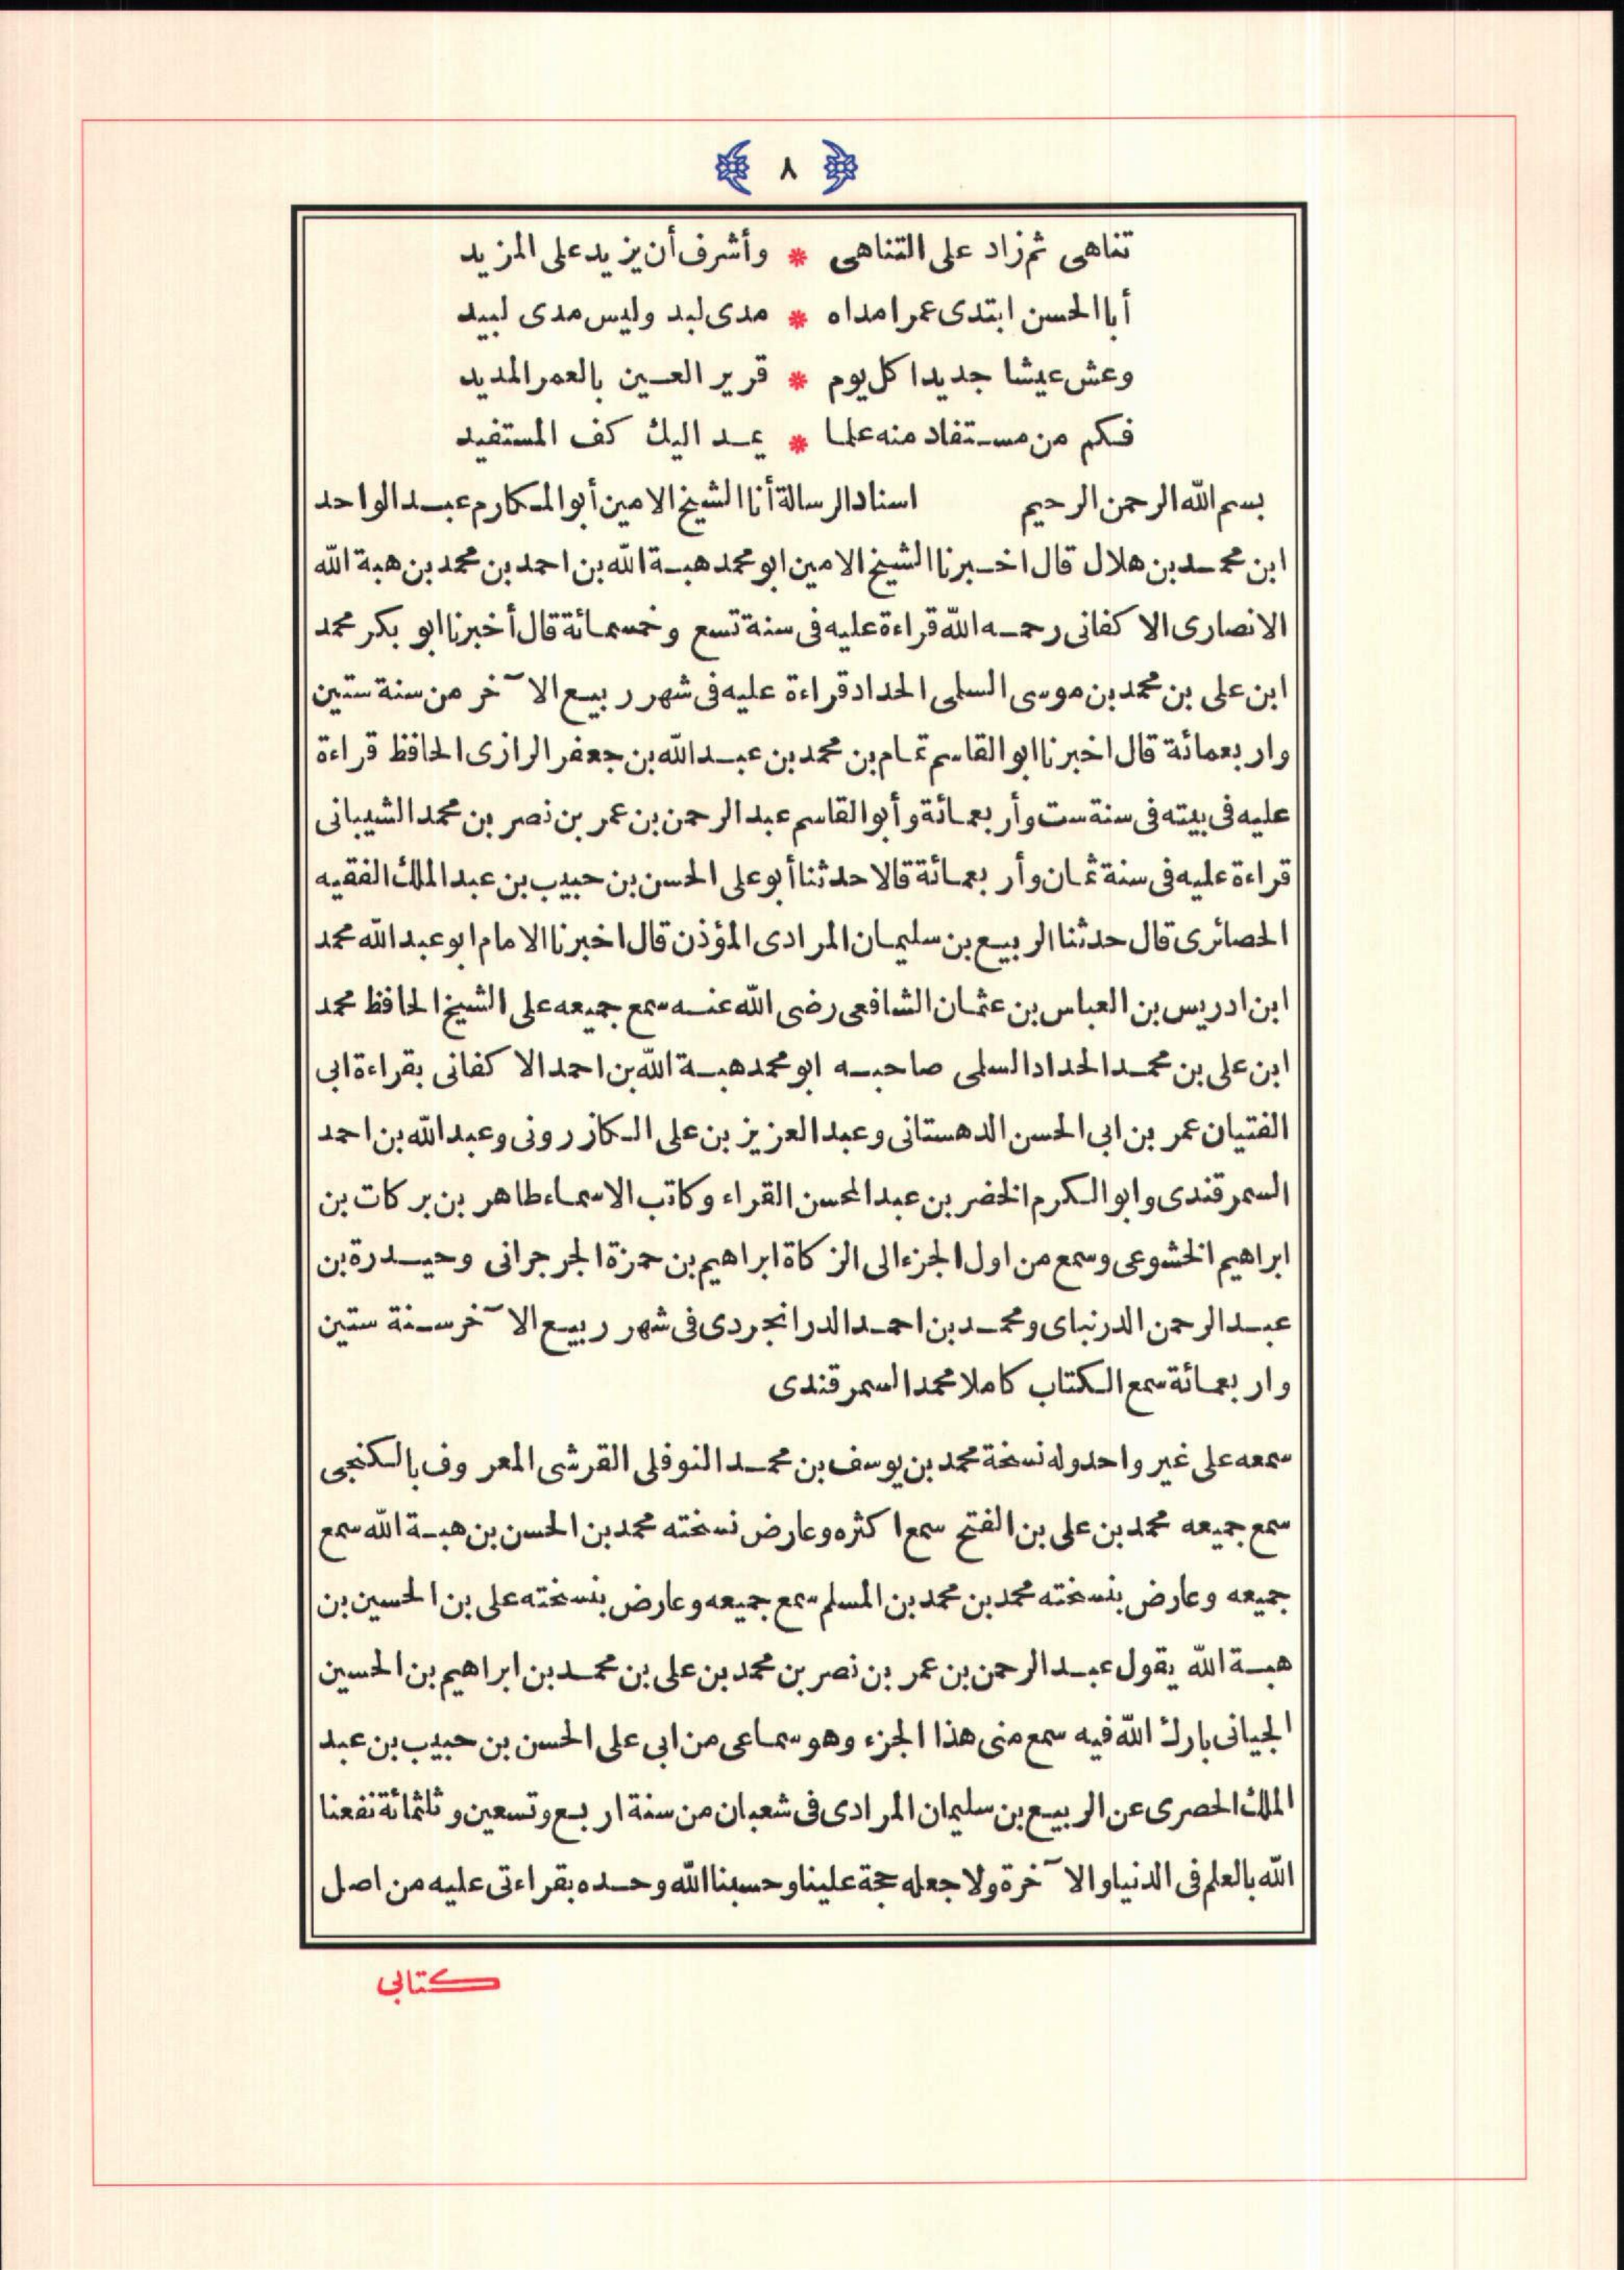 ﴿ ٨ ﴾
تناهى ثم زاد على التناهى * وأشرف أن يزيد على المزيد
أبا الحسن ابتدى عمرا مداه * مدى لبد وليس مدى لبيد
وعش عيشا جديدا كل يوم * قرير العين بالعمر المديد
فكم من مستفاد منه علما * يمد اليك كف المستفيد
بسم الله الرحمن الرحيم اسناد الرسالة أنا الشيخ الامين أبو المكارم عبد الواحد
ابن محمد بن هلال قال اخبرنا الشيخ الامين ابو محمد هبة الله بن احمد بن محمد بن هبة الله
الانصارى الاكفانى رحمه الله قراءة عليه فى سنة تسع وخمسمائة قال أخبرنا ابو بكر محمد
ابن على بن محمد بن موسى السلمى الحداد قراءة عليه فى شهر ربيع الآخر من سنة ستين
واربعمائة قال اخبرنا ابو القاسم تمام بن محمد بن عبد الله بن جعفر الرازى الحافظ قراءة
عليه فى بيته فى سنة ست وأربعمائة وأبو القاسم عبد الرحمن بن عمر بن نصر بن محمد الشيبانى
قراءة عليه فى سنة ثمان وأربعمائة قالا حدثنا أبو على الحسن بن حبيب بن عبد الملك الفقيه
الحصائرى قال حدثنا الربيع بن سليمان المرادى المؤذن قال اخبرنا الامام ابو عبد الله محمد
ابن ادريس بن العباس بن عثمان الشافعى رضى الله عنه سمع جميعه على الشيخ الحافظ محمد
ابن على بن محمد الحداد السلمى صاحبه ابو محمد هبة الله بن احمد الاكفانى بقراءة ابى
الفتيان عمر بن ابى الحسن الدهستانى وعبد العزيز بن على الكازرونى وعبد الله بن احمد
السمرقندى وابو الكرم الخضر بن عبد المحسن القراء وكاتب الاسماء طاهر بن بركات بن
ابراهيم الخشوعى وسمع من اول الجزء الى الزكاة ابراهيم بن حمزة الجرجرانى وحيدرة بن
عبد الرحمن الدرنباى ومحمد بن احمد الدرانجردى فى شهر ربيع الآخر سنة ستين
واربعمائة سمع الكتاب كاملا محمد السمرقندى
سمعه على غير واحد وله نسخة محمد بن يوسف بن محمد النوفلى القرشى المعروف بالكنجى
سمع جميعه محمد بن على بن الفتح سمع اكثره وعارض نسخته محمد بن الحسن بن هبة الله سمع
جميعه وعارض بنسخته محمد بن محمد بن المسلم سمع جميعه وعارض بنسخته على بن الحسين بن
هبة الله يقول عبد الرحمن بن عمر بن نصر بن محمد بن على بن محمد بن ابراهيم بن الحسين
الجيانى بارك الله فيه سمع منى هذا الجزء وهو سماعى من ابى على الحسن بن حبيب بن عبد
الملك الحصرى عن الربيع بن سليمان المرادى فى شعبان من سنة اربع وتسعين وثلثمائة نفعنا
الله بالعلم فى الدنيا والآخرة ولا جعله حجة علينا وحسبنا الله وحده بقراءتى عليه من اصل
كتابى